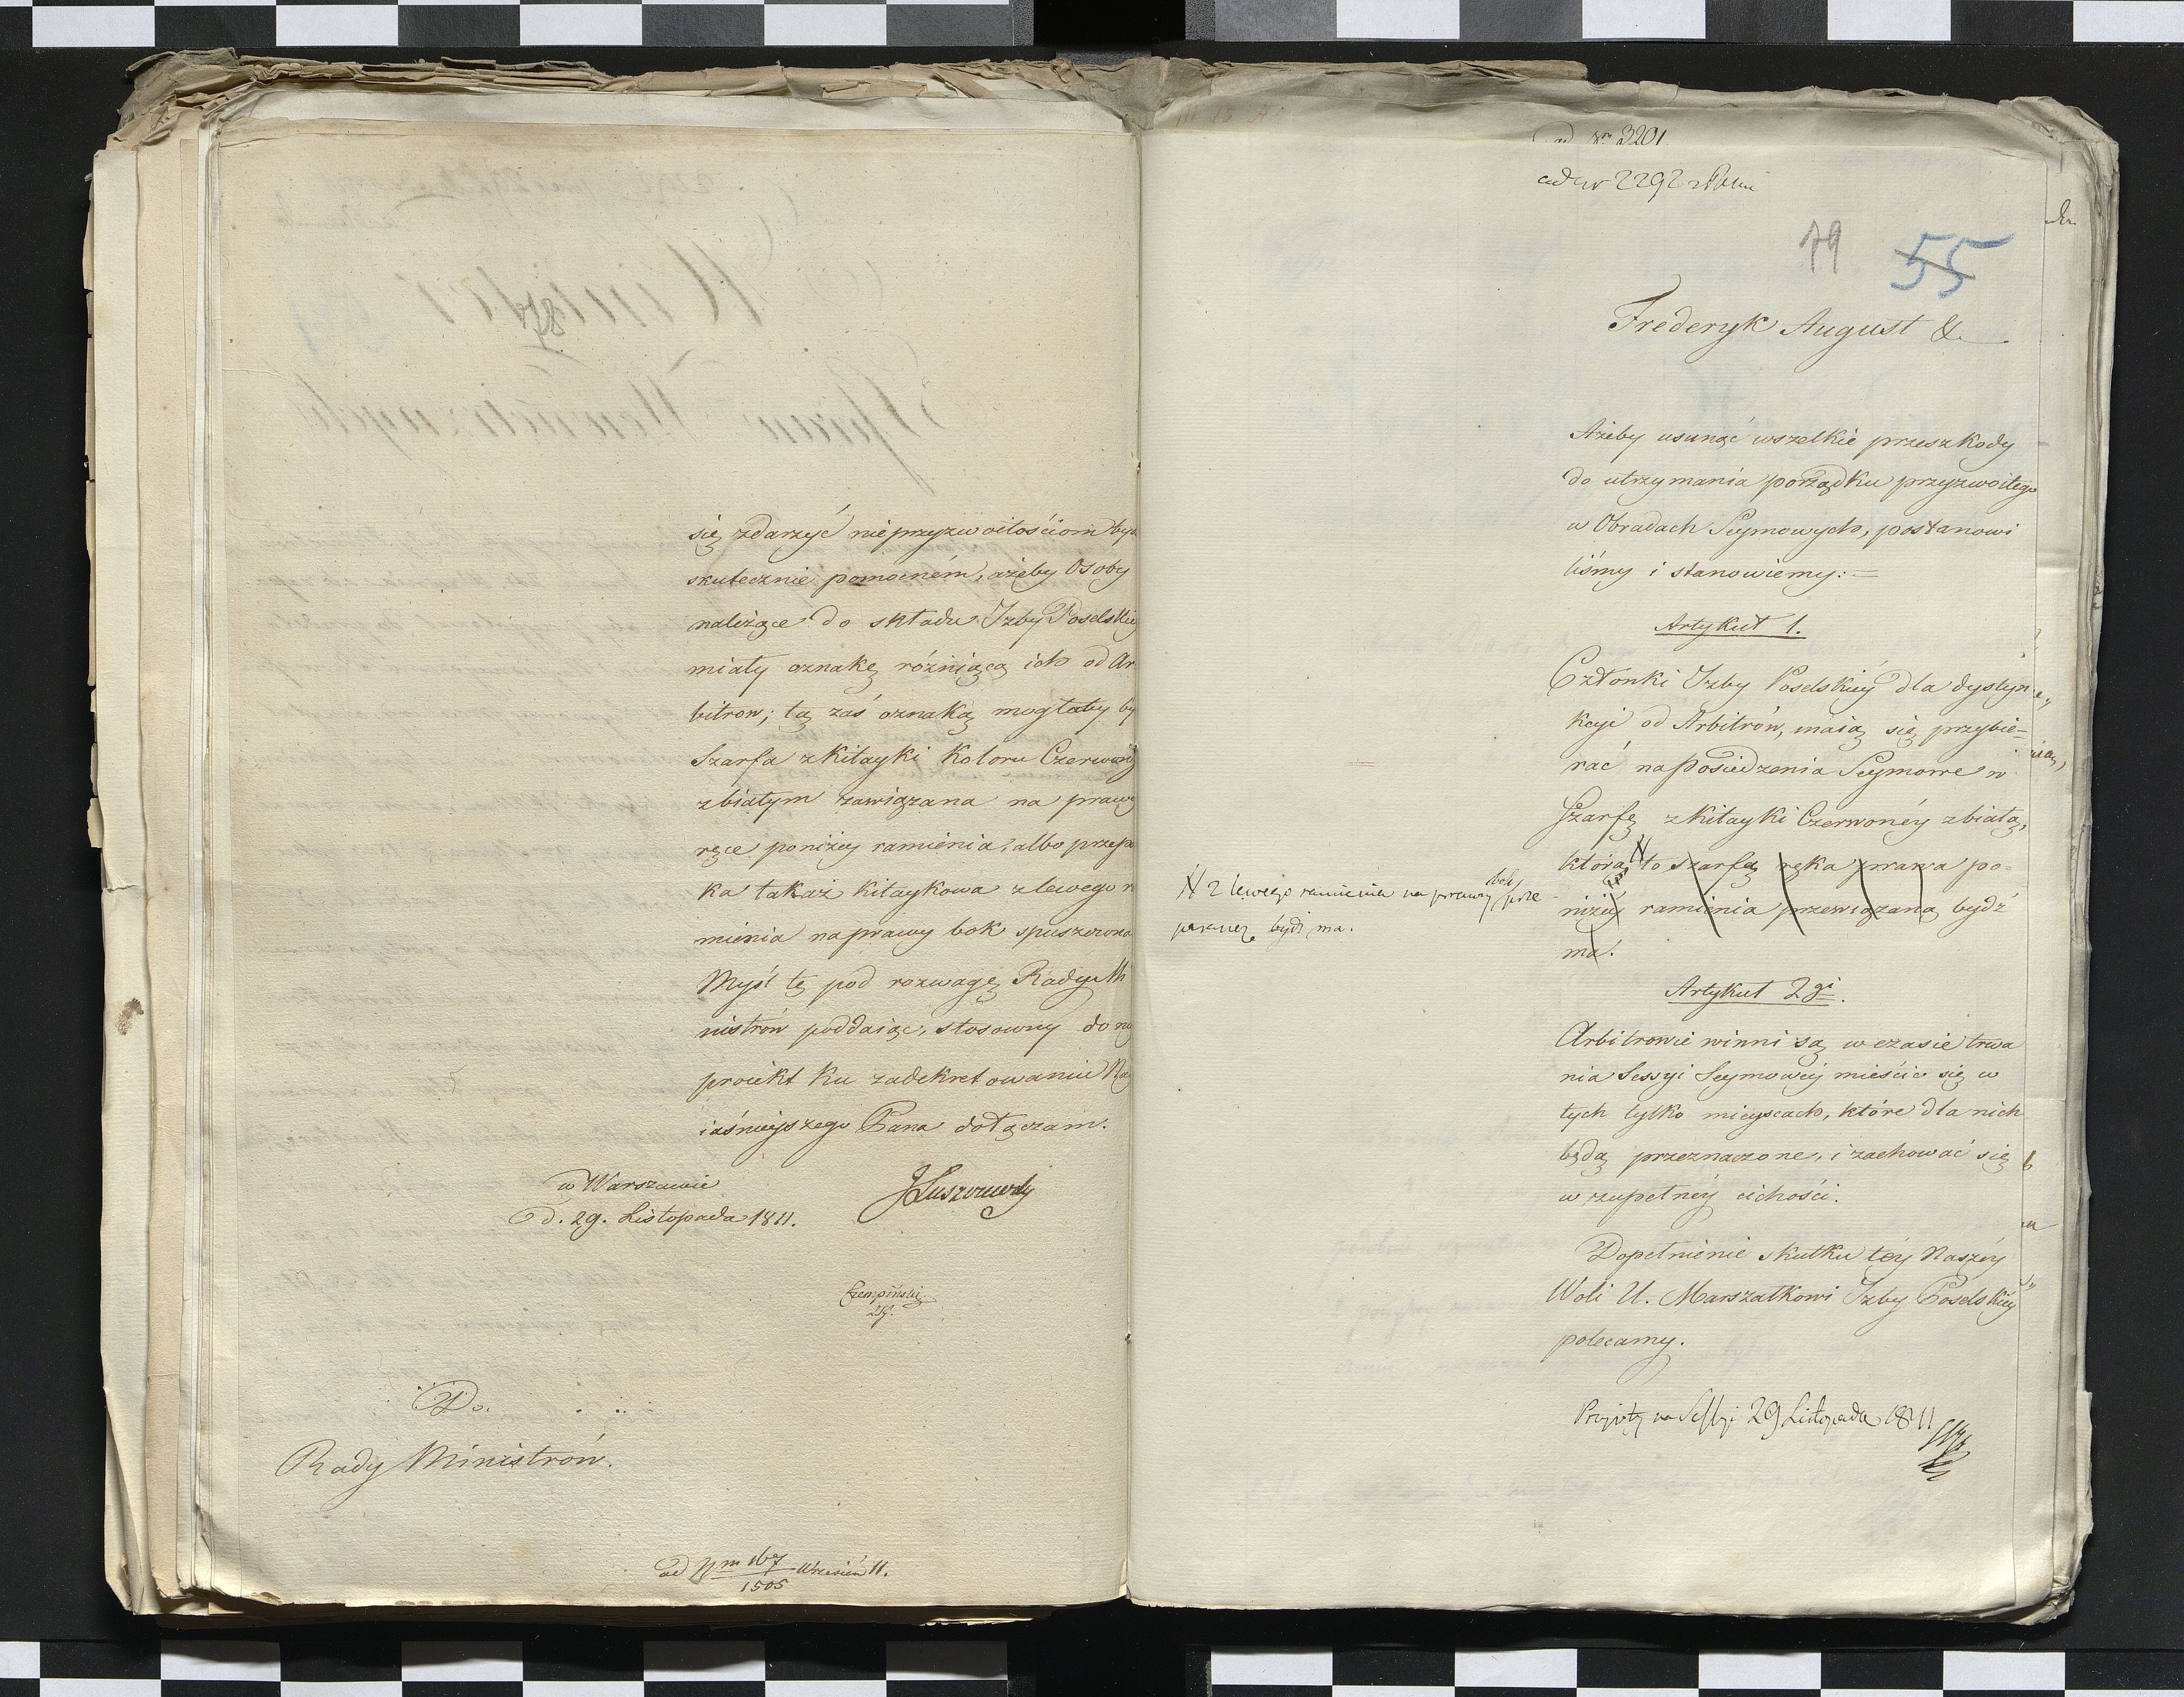 się zdarzyć nieprzyzwoitościom by
skutecznie pomocném, ażeby Osoby
należące do składu Izby Poselskiey
miały oznakę różniącą ich od Ar
bitrow; tą zaś oznaką mogłaby by
Szarfa z Kitayki Koloru Czerwoneg
z białym zawiązana na prawey
ręce poniżey ramienia, albo przepa
ka takaż kitaykowa z lewego r
mienia na prawy bok spuszczona
Myśl tę pod rozwagę Rady Mi
nistrów poddaiąc, stosowny do niey
proiekt ku zadekretowaniu Nay
iaśnieyszego Pana dołączam.
w Warszawie
d. 29. Listopada 1811.
JŁuszczewski
Czempiński
Do.
Rady Ministrów.
ad Nm 167/1505 Wrzesień 11.
ad Nr 3201.
ad Nr 2292
79 55
Frederyk August &
Ażeby usunąć wszelkie przeszkody
do utrzymania porządku przyzwoitego
w Obradach Seymowych, postanowi
liśmy i stanowiemy:=
Artykuł 1.
Członki Izby Poselskiéy dla dystyn
kcyi od Arbitrów, maią się przybie=
rać na Posiedzenia Seymowe w
Szarfę z Kitayki Czerwonéy z białą,
którą N to szarfą ręka prawa po=
niżey ramienia przewiązaną bydź
ma.
N z lewego ramienia na prawy bok prze
pasaną bydź ma.
Artykuł 2gi.
Arbitrowie winni są w czasie trwa
nia Sessyi Seymowéy mieścić się w
tych tylko mieyscach, które dla nich
będą przeznaczone, i zachować się
w zupełnéy cichości.
Dopełnienie skutku téy Naszéy
Woli U. Marszałkowi Izby Poselskiéy
polecamy.
Przyięty na Sessyi 29 Listopada 1811